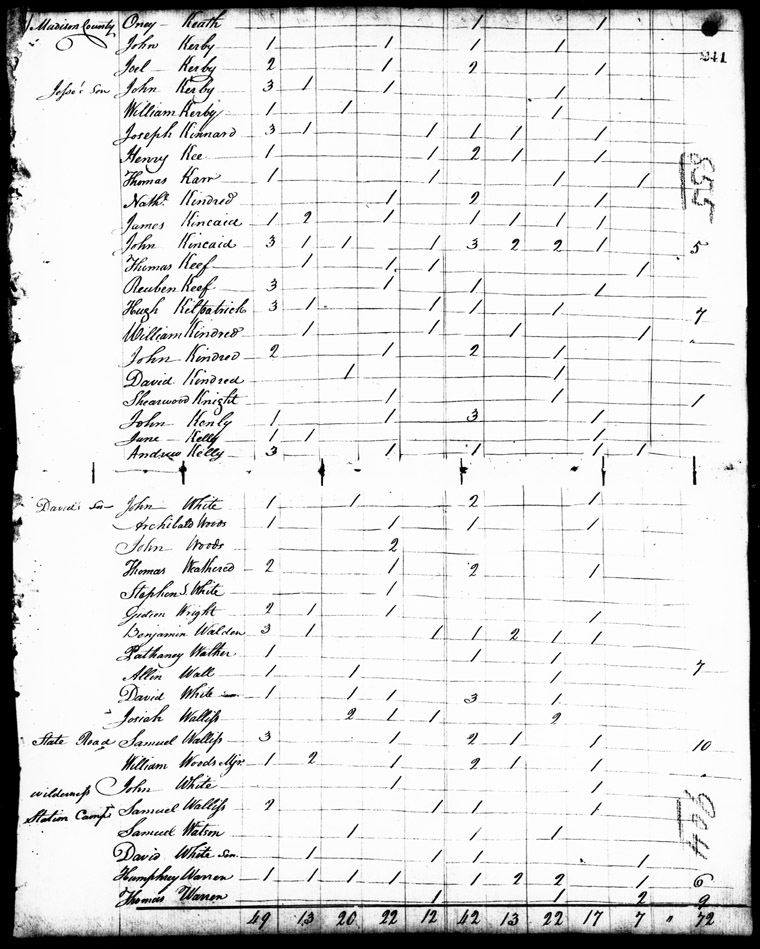 Madison County Oney Keath 1 1
John Kerby 1 1 1 1
241
Joel Kerby 2 1 2 1
Jesse's Son John Kerby 3 1 1 1
William Kerby 1 1 1
Joseph Kinnard 3 1 1 1 1 1
Henry Kee 1 1 2 1 1
Thomas Karr 1 1 1 1
553
Nathl Kindred 1 2 1
James Kincaid 1 2 1 1 1 1 1
John Kincaid 3 1 1 1 3 2 2 1 5
Thomas Keef 1 1 1 1
Reuben Keef 3 1 1 1
Hugh Kilpatrick 3 1 1 1 1 7
William Kindred 1 1 1 1 "
John Kindred 2 1 2 1
David Kindred 1 1
Shearwood Knight 1 1 1
John Kenly 1 1 3 1
June Kelly 1 1 1
Andrew Kelly 3 1 1 1 1
David's Son John White 1 1 2 1
Archibald Woods 1 1 1 1
John Woods 2
Thomas Weathered 2 1 2 1
Stephen S. White 1
Gideon Wright 2 1 1 1
Benjamin Walden 3 1 1 1 2 1 1
Walker 1 1 1
Allen Wall 1 1 1 7
David White 1 1 1 3 1
Josiah Walliss 2 1 1 2
State Road Samuel Walliss 3 1 2 1 1 10
William Woods Mjr. 1 2 1 2 1 1 "
wilderness John White 1 1
Station Camp Samuel Walliss 2 1 1 1
Samuel Watson 1 1 1
David White Sen. 1 1 1 1
Humphrey Warren 1 1 1 1 1 2 2 1 6
Thomas Warren 1 1 2 9
49 13 20 22 12 42 13 22 17 7 " 72